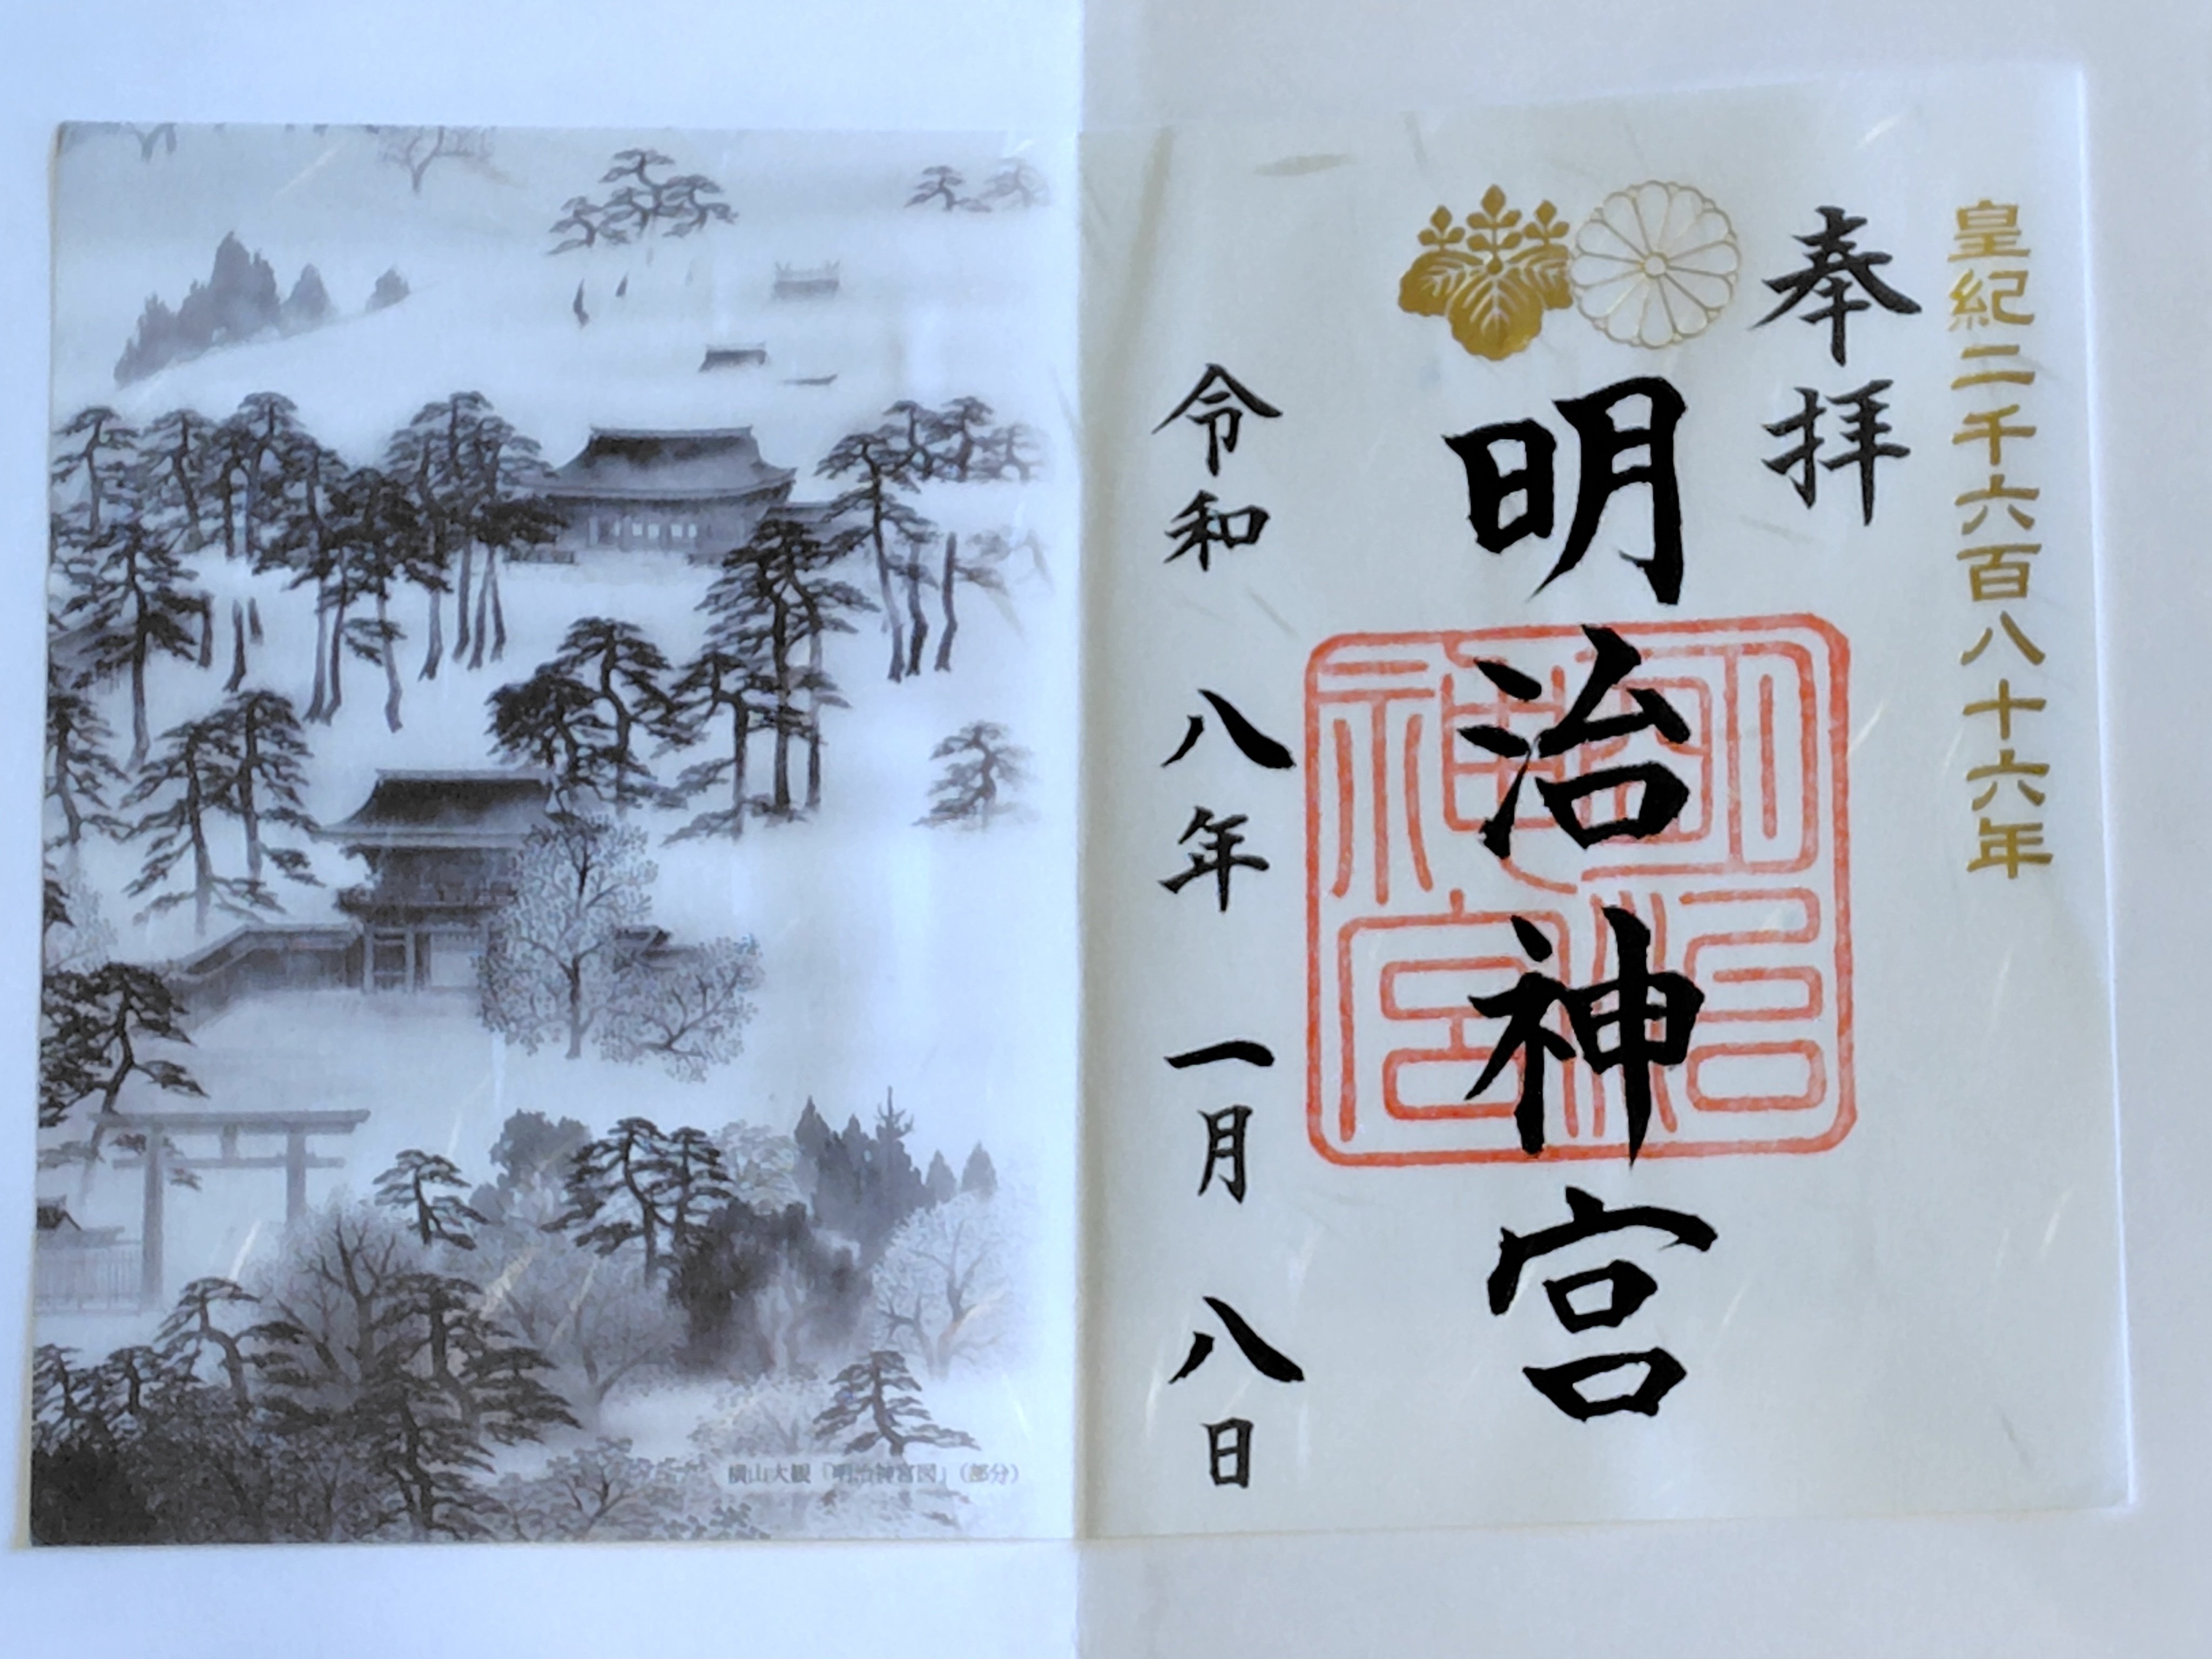 皇紀二千六百八十六年
奉拝
明治神宮
明治神宮
令和八年一月八日
横山大観「明治神宮図」（部分）